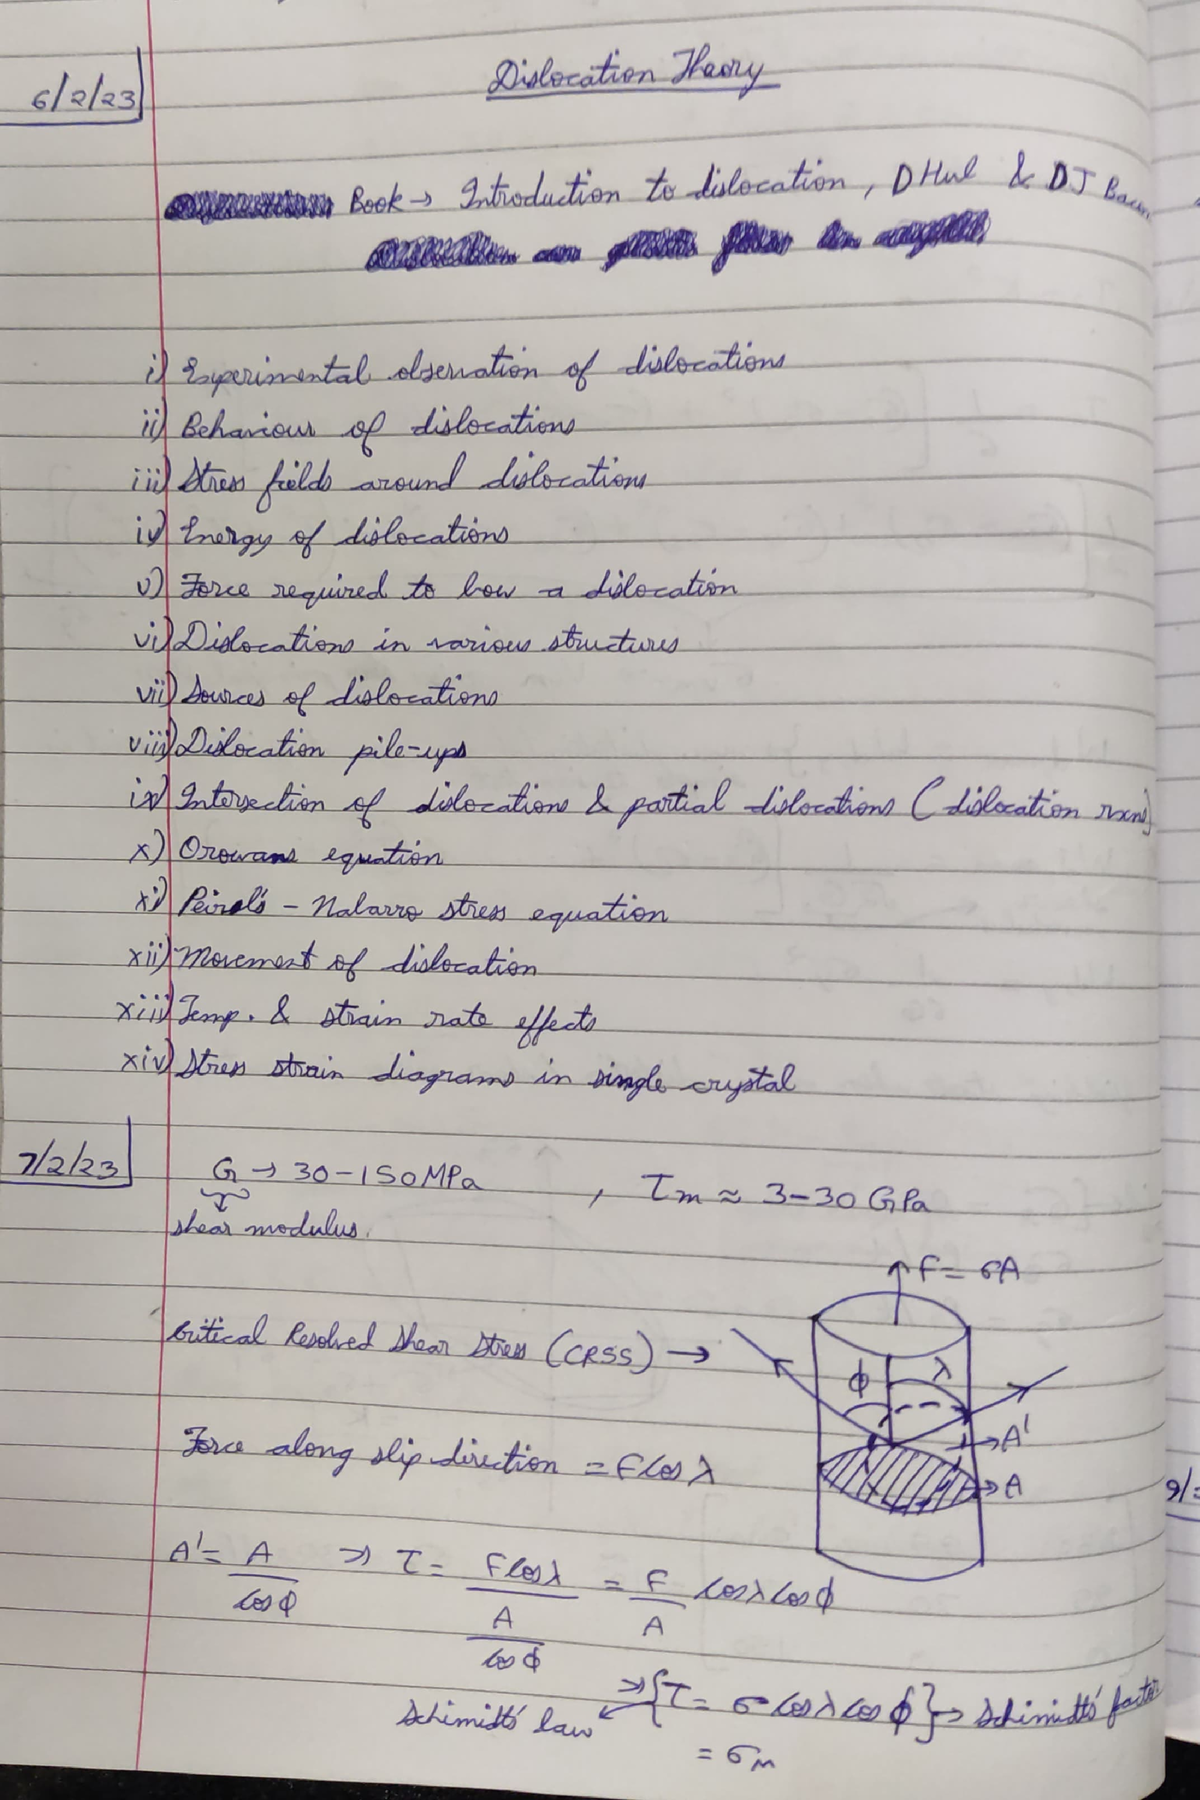 Dislocation Theory
6/2/23
Book → Introduction to dislocation, D Hul & DJ Bacon
i) Experimental observation of dislocations
ii) Behaviour of dislocations
iii) Stress fields around dislocations
iv) Energy of dislocations
v) Force required to bow a dislocation
vi) Dislocations in various structures
vii) Sources of dislocations
viii) Dislocation pile-ups
ix) Intersection of dislocations & partial dislocations (dislocation rxns)
x) Orowans equation
xi) Peirel's - Nalarro stress equation
xii) Movement of dislocation
xiii) Temp. & strain rate effects
xiv) Stress strain diagrams in single crystal
7/2/23
G → 30-150MPa , τm ≈ 3-30 GPa
shear modulus.
F = σA
Critical Resolved Shear Stress (CRSS) →
ϕ λ
A'
A
Force along slip direction = Fcosλ
A' = A/cosϕ ⇒ τ = Fcosλ/(A/cosϕ) = F/A cosλcosϕ
⇒ {τ = σcosλcosϕ} → Schimidts' factor
Schimidts' law
= σm